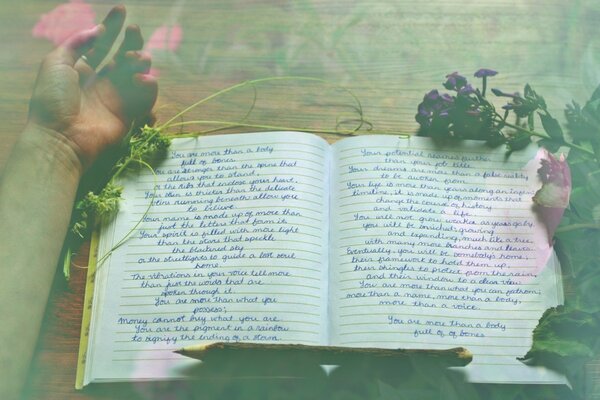 You are more than a body
full of bones.
You are stronger than the spine that
allows you to stand,
or the ribs that enclose your heart.
Your skin is thicker than the delicate
veins running beneath allow you
to believe.
Your name is made up of more than
just the letters that form it.
Your spirit is filled with more light
than the stars that speckle
the blackest sky
or the streetlights to guide a lost soul
home.
The vibrations in your voice tell more
than just the words that are
spoken through it.
You are more than what you
possess;
Money cannot buy what you are.
You are the pigment in a rainbow
to signify the ending of a storm.
Your potential reaches further
than your feet.
Your dreams are more than a false reality
to be set and kill.
Your life is more than years along an
timeline, it is made up of moments that
change the course of history
and validate a life.
You will not grow weaker as years go by,
you will be enriched, growing
and expanding, much like a tree,
with many more branches and leaves.
Eventually, you will be somebody's home,
their framework to hold them up,
their shingles to protect from the rain,
and their window to a clear day.
You are more than what you can fathom,
more than a name, more than a body,
more than a voice.
You are more than a body
full of of bones